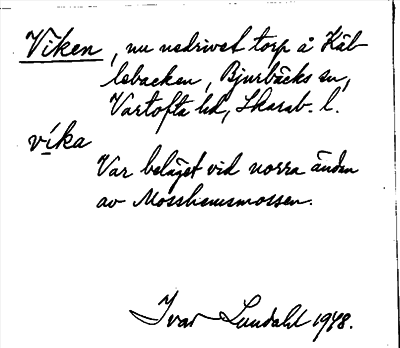 Viken, nu nedrivet torp å Käb-
lebacken, Bjurbäcks sn,
Vartofta hd, Skarab. l.
víka
Var beläget vid norra änden
av Mosshemsmossen.
Ivar Lundahl 1948.